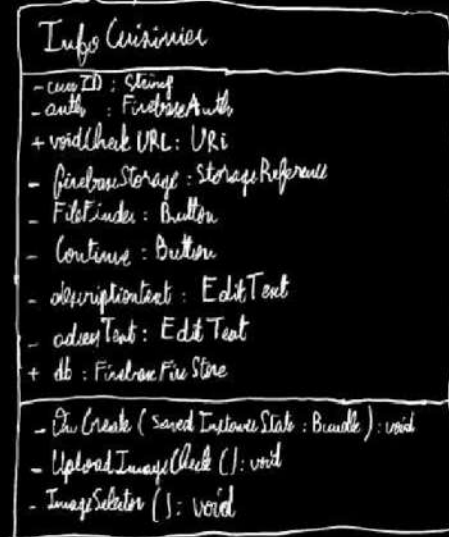 Info Cuisinier
- cuisID : String
- auth : FirebaseAuth
+ voidCheck URL : URi
- firebaseStorage : StorageReference
- FileFinder : Button
- Continue : Button
- descriptiontext : EditText
- adressText : EditText
+ db : FirebaseFireStore
- OnCreate ( Saved InstanceState : Bundle ) : void
- UploadImageCheck () : void
- ImageSelector () : void